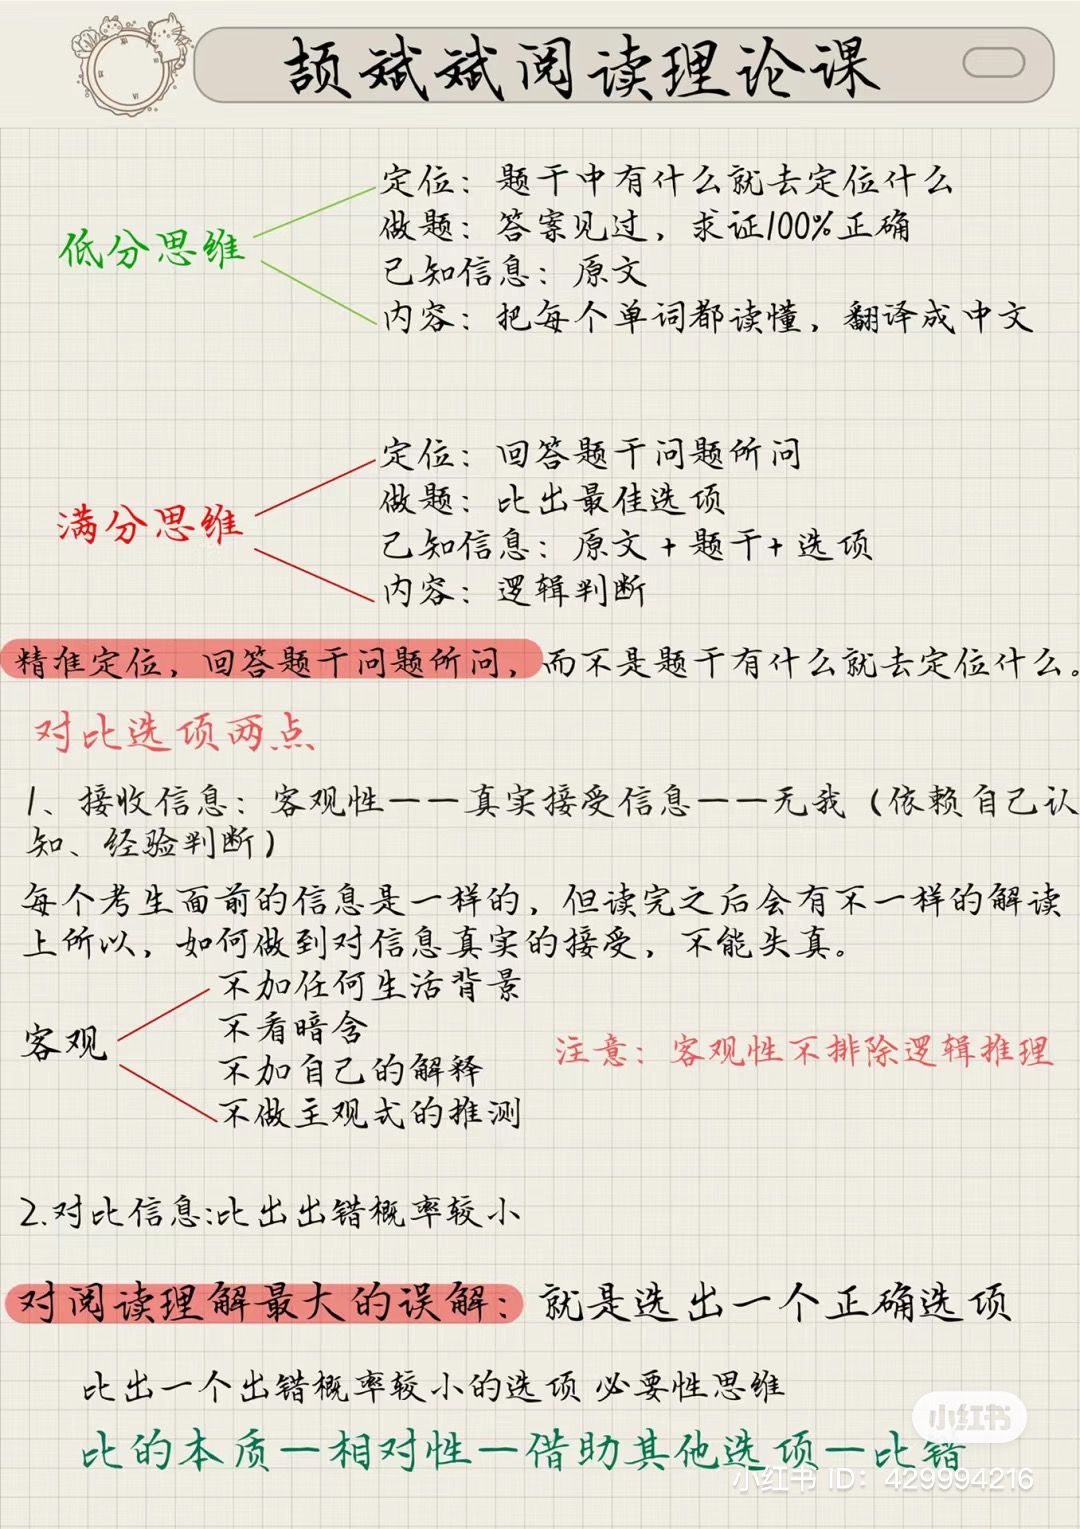 颉斌斌阅读理论课
定位：题干中有什么就去定位什么
做题：答案见过，求证100%正确
低分思维
已知信息：原文
内容：把每个单词都读懂，翻译成中文
定位：回答题干问题所问
做题：比出最佳选项
满分思维
已知信息：原文+题干+选项
内容：逻辑判断
精准定位，回答题干问题所问，而不是题干有什么就去定位什么。
对比选项两点
1、接收信息：客观性——真实接受信息——无我（依赖自己认
知、经验判断）
每个考生面前的信息是一样的，但读完之后会有不一样的解读
上所以，如何做到对信息真实的接受，不能失真。
不加任何生活背景
不看暗含
客观
不加自己的解释
不做主观式的推测
注意：客观性不排除逻辑推理
2.对比信息:比出出错概率较小
对阅读理解最大的误解：就是选出一个正确选项
比出一个出错概率较小的选项 必要性思维
比的本质—相对性—借助其他选项—比错
小红书
小红书 ID：429994216